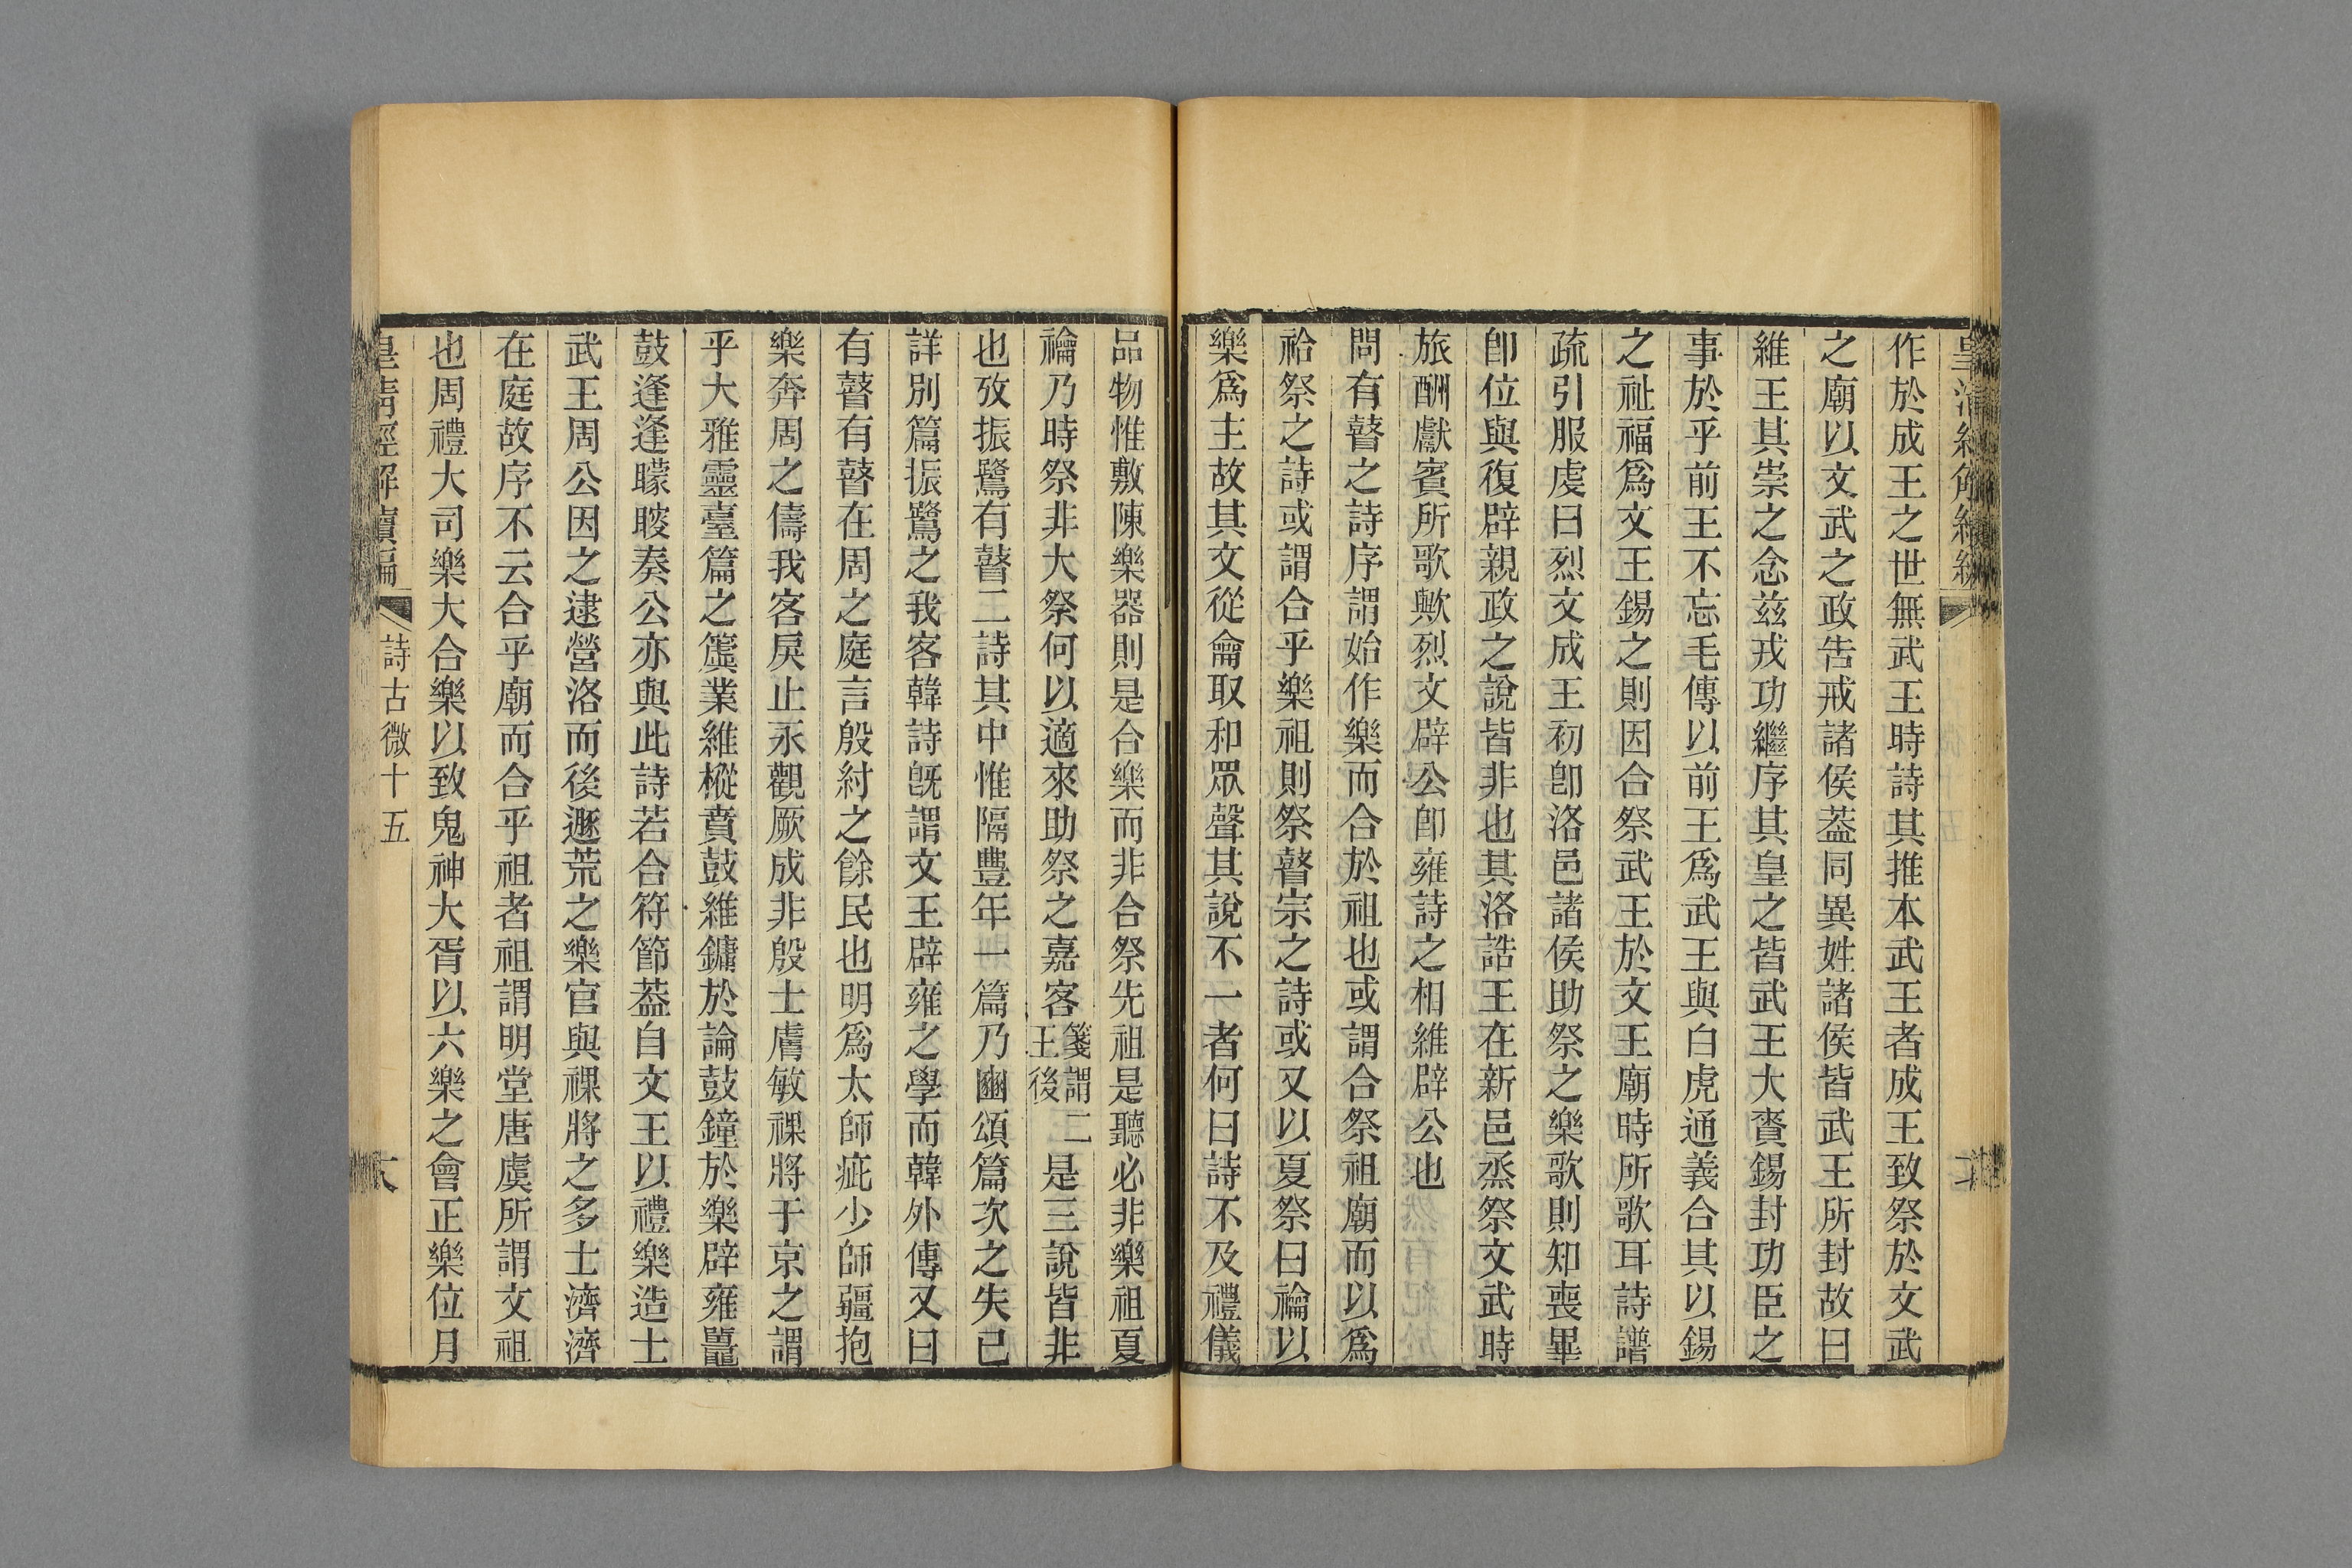 作於成王之世無武王時詩其推本武王者成王致祭於文武
之廟以文武之政告戒諸侯葢同異姓諸侯皆武王所封故曰
維王其崇之念茲戎功繼序其皇之皆武王大賚錫封功臣之
事於乎前王不忘毛傳以前王爲武王與白虎通義合其以錫
之祉福爲文王錫之則因合祭武王於文王廟時所歌耳詩譜
疏引服虔曰烈文成王初卽洛邑諸侯助祭之樂歌則知喪畢
卽位與復辟親政之說皆非也其洛誥王在新邑烝祭文武時
旅酬獻賓所歌歟烈文辟公卽雍詩之相維辟公也
問有瞽之詩序謂始作樂而合於祖也或謂合祭祖廟而以爲
祫祭之詩或謂合乎樂祖則祭瞽宗之詩或又以夏祭曰禴以
樂爲主故其文從龠取和眾聲其說不一者何曰詩不及禮儀
品物惟敷陳樂器則是合樂而非合祭先祖是聽必非樂祖夏
禴乃時祭非大祭何以適來助祭之嘉客箋謂二王後是三說皆非
也攷振鷺有瞽二詩其中惟隔豐年一篇乃豳頌篇次之失已
詳別篇振鷺之我客韓詩旣謂文王辟雍之學而韓外傳又曰
有瞽有瞽在周之庭言殷紂之餘民也明爲太師疵少師彊抱
樂奔周之儔我客戾止永觀厥成非殷士膚敏祼將于京之謂
乎大雅靈臺篇之虡業維樅賁鼓維鏞於論鼓鐘於樂辟雍鼉
鼓逢逢矇瞍奏公亦與此詩若合符節葢自文王以禮樂造士
武王周公因之逮營洛而後遯荒之樂官與祼將之多士濟濟
在庭故序不云合乎廟而合乎祖者祖謂明堂唐虞所謂文祖
也周禮大司樂大合樂以致鬼神大胥以六樂之會正樂位月
皇清經解續編 詩古微十五